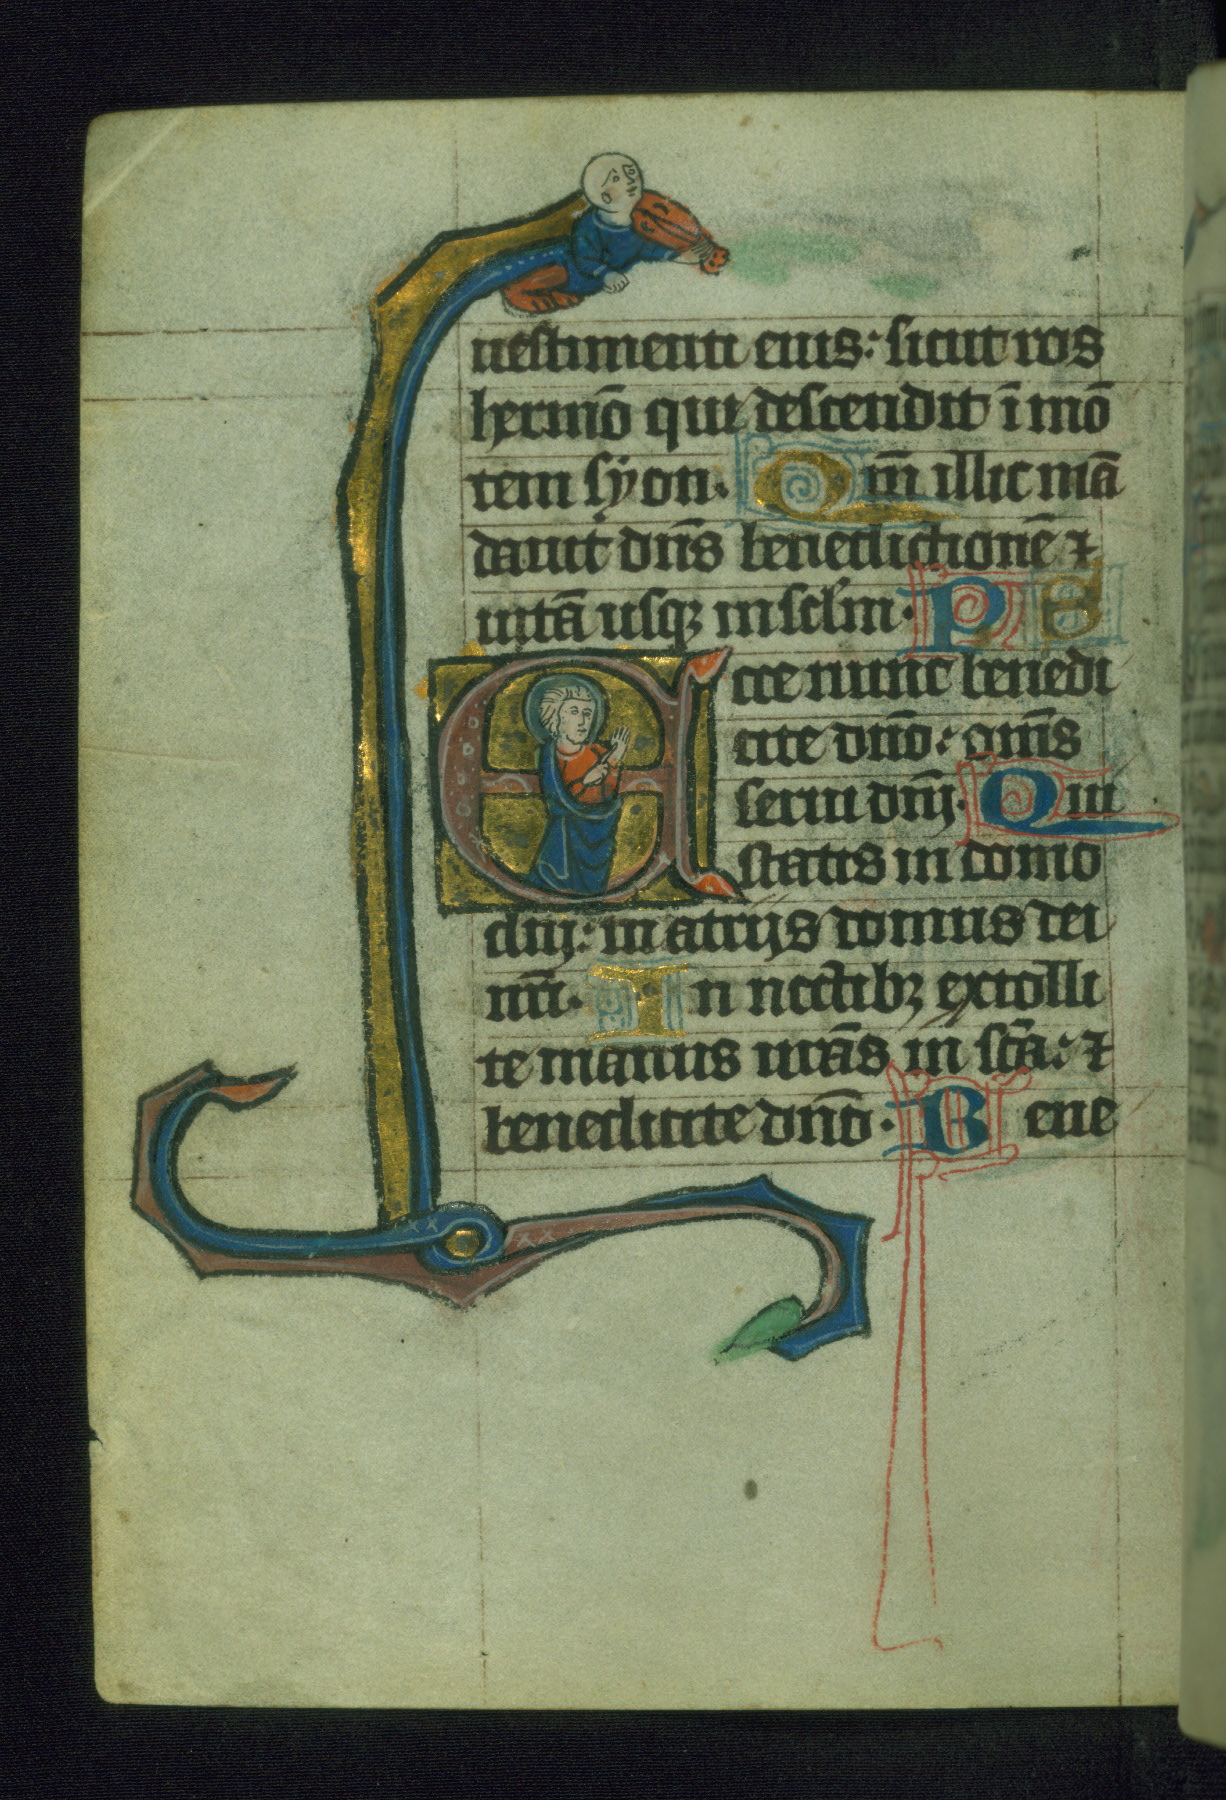 uestimenti eius: sicut ros
hermō qui descendit ī mō
tem syon. Qm̄ illic mā
dauit dn̄s benedictionē ⁊
uitā usqꝫ in sclm. P S
Ecce nunc benedi
cite dn̄o: om̄s
serui dn̄j. Qui
statis in domo
dn̄j: in atrijs domus dei
nr̄i. In noctibꝫ extolli
te manus ur̄as in sc̄a: ⁊
benedicite dn̄o. Bene